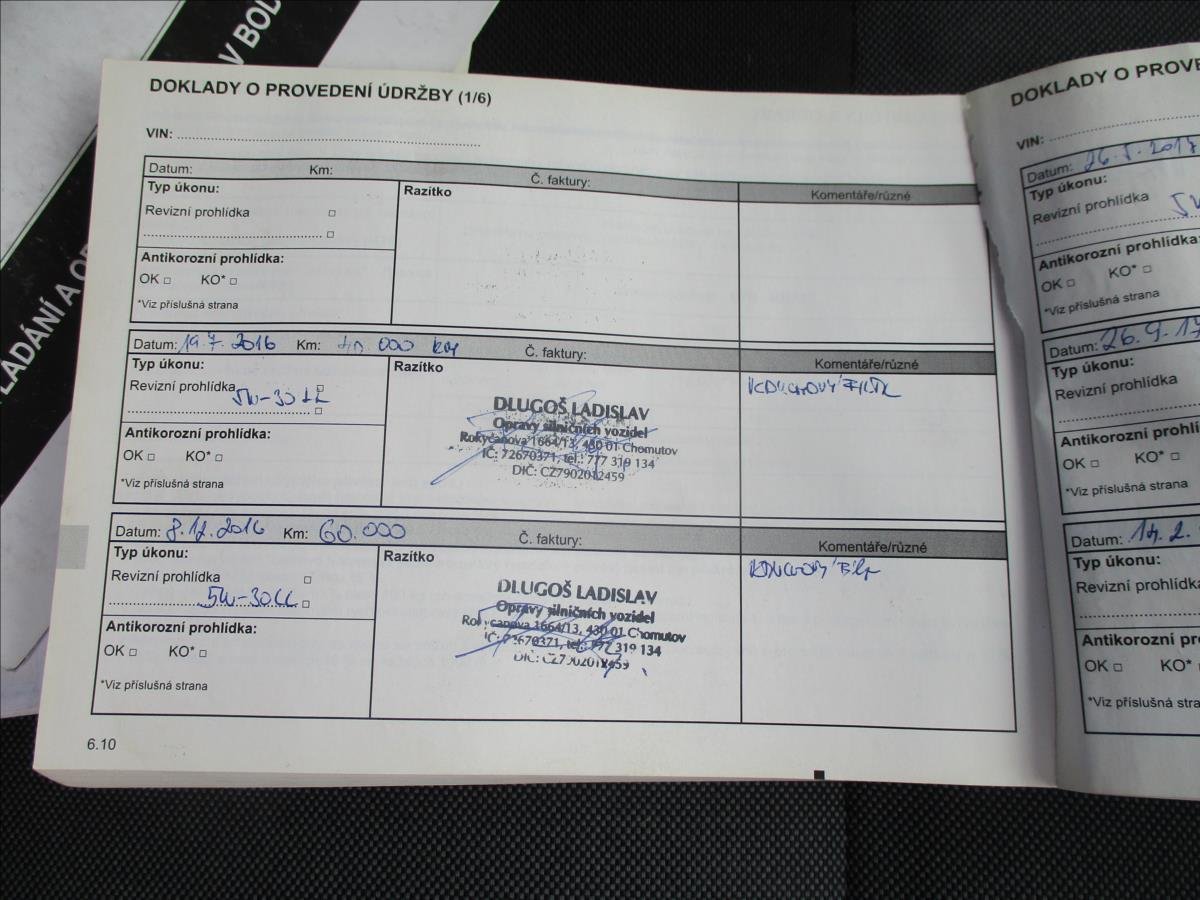 V BOD
LÁDÁNÍ A O
DOKLADY O PROVEDENÍ ÚDRŽBY (1/6)
VIN:
Datum: Km: Č. faktury:
Typ úkonu: Razítko Komentáře/různé
Revizní prohlídka
Antikorozní prohlídka:
OK □ KO* □
*Viz příslušná strana
Datum: 19.7.2016 Km: 40.000 km Č. faktury:
Typ úkonu: Razítko Komentáře/různé
Revizní prohlídka
5W-30 LL
DLUGOŠ LADISLAV
Opravy silničních vozidel
Rokycanova 1664/13, 430 01 Chomutov
IČ: 72670371, tel.: 777 319 134
DIČ: CZ7902012459
Antikorozní prohlídka:
OK □ KO* □
*Viz příslušná strana
Datum: 8.12.2016 Km: 60.000 Č. faktury:
Typ úkonu: Razítko Komentáře/různé
Revizní prohlídka
5W-30LL
DLUGOŠ LADISLAV
Opravy silničních vozidel
Rokycanova 1664/13, 430 01 Chomutov
IČ: 72670371, tel.: 777 319 134
DIČ: CZ7902012459
Antikorozní prohlídka:
OK □ KO* □
*Viz příslušná strana
6.10
DOKLADY O PROVE
VIN:
Datum: 26.5.2017
Typ úkonu:
Revizní prohlídka
Antikorozní prohlídka:
OK □ KO* □
*Viz příslušná strana
Datum: 26.9.17
Typ úkonu:
Revizní prohlídka
Antikorozní prohlí
OK □ KO* □
*Viz příslušná strana
Datum: 14.2.
Typ úkonu:
Revizní prohlídka
Antikorozní pro
OK □ KO*
*Viz příslušná stra